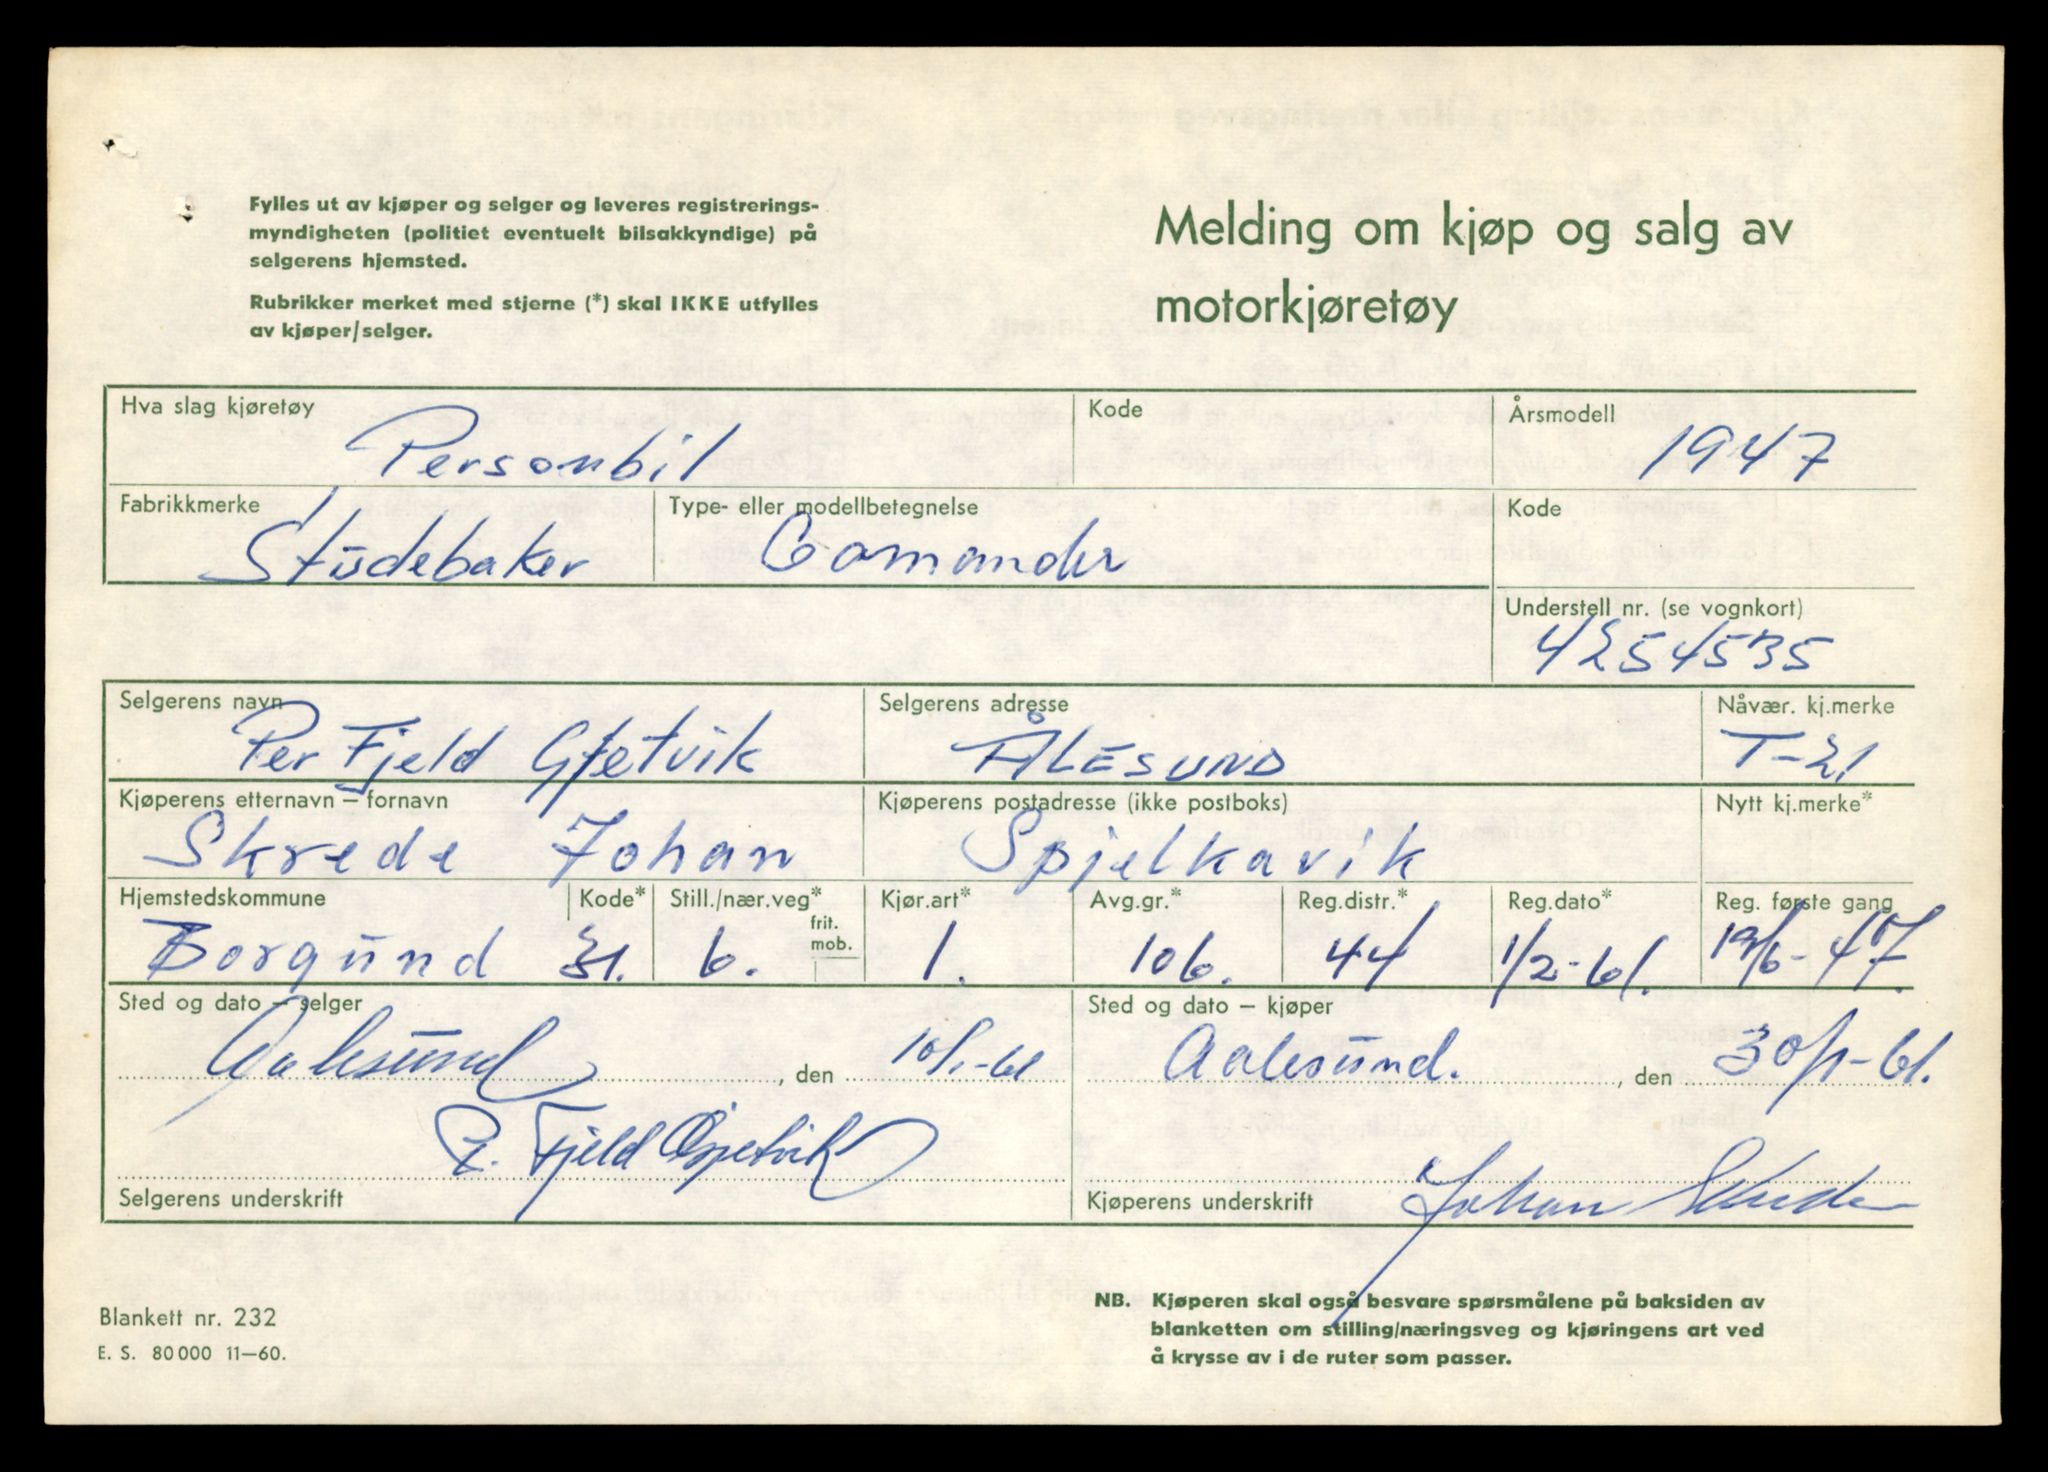 Fylles ut av kjøper og selger og leveres registrerings-
myndigheten (politiet eventuelt bilsakkyndige) på
selgerens hjemsted.
Rubrikker merket med stjerne (*) skal IKKE utfylles
av kjøper/selger.
Melding om kjøp og salg av
motorkjøretøy
Hva slag kjøretøy Kode Årsmodell
Personbil 1947
Fabrikkmerke Type- eller modellbetegnelse Kode
Studebaker Comander
Understell nr. (se vognkort)
4254535
Selgerens navn Selgerens adresse Nåvær. kj.merke
Per Fjeld Gjetvik ÅLESUND T-21
Kjøperens etternavn – fornavn Kjøperens postadresse (ikke postboks) Nytt kj.merke*
Skrede Johan Spjelkavik
Hjemstedskommune Kode* Still./nær.veg* frit. mob. Kjør.art* Avg.gr.* Reg.distr.* Reg.dato* Reg. første gang
Borgund 31. 6. 1. 106. 44 1/2-61. 19/6-47.
Sted og dato – selger Sted og dato – kjøper
Aalesund, den 10/1-61 Aalesund., den 30/1-61.
P. Fjeld Gjetvik
Johan Skrede
Selgerens underskrift Kjøperens underskrift
Blankett nr. 232
E. S. 80 000 11—60.
NB. Kjøperen skal også besvare spørsmålene på baksiden av
blanketten om stilling/næringsveg og kjøringens art ved
å krysse av i de ruter som passer.